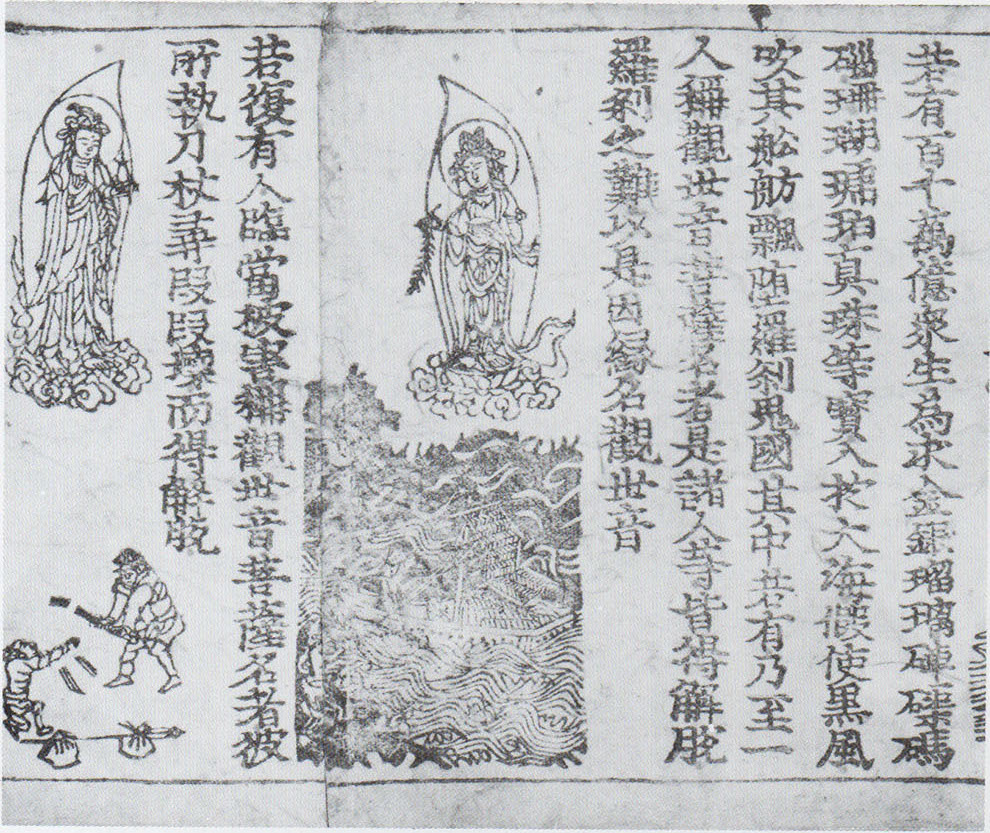 若有百千萬億衆生為求金銀瑠璃硨磲碼
碯珊瑚琥珀真珠等寳入於大海假使黒風
吹其舩舫飄堕羅刹鬼國其中若有乃至一
人稱觀世音菩薩名者是諸人等皆得解脱
羅刹之難以是因縁名觀世音
若復有人臨當被害稱觀世音菩薩名者彼
所執刀杖尋段段壊而得解脱